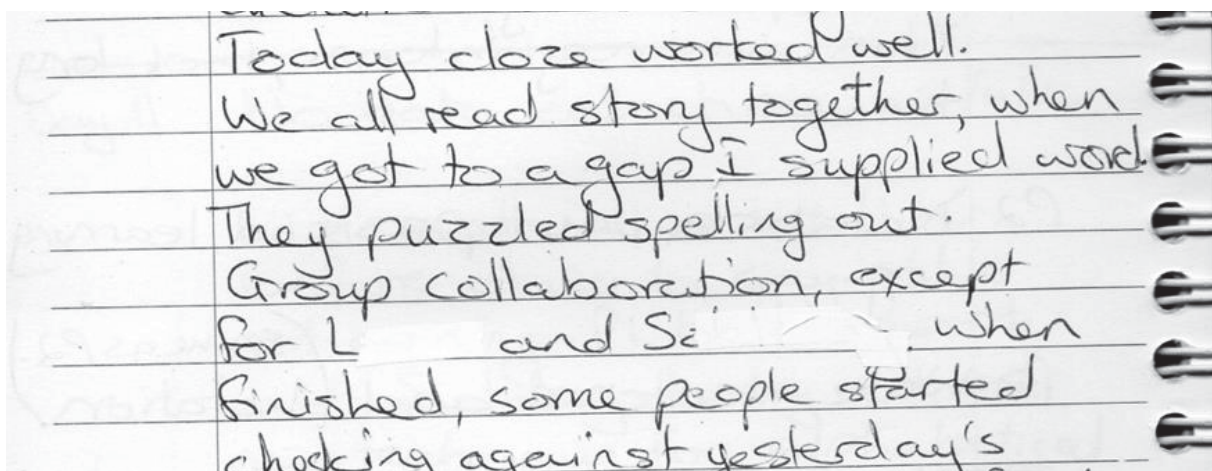 Today cloze worked well.
We all read story together, when
we got to a gap I supplied word
They puzzled spelling out.
Group collaboration, except
for L and Si when
finished, some people started
checking against yesterday's